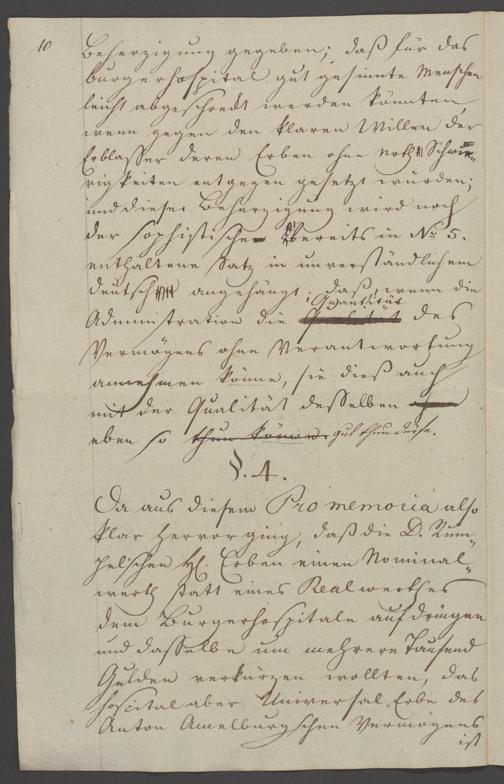 10
Beherzigung gegeben; daß für das
Burgerhospital gut gesinnte Menschen
leicht abgeschreckt werden könnten
wenn gegen den klaren Willen der
Erblasser deren Erben ohne Noth Schwie-
rigkeiten entgegen gesetzt würden;
und dieser Beherzigung wird noch
der sophistische bereits in No 5.
enthaltene Satz in unverständlichem
deutsch angehängt; daß, wenn die
Quantität
Administration die Qualität des
Vermögens ohne Verantwortung
annehmen könne, sie dieß auch
mit der Qualität desselben
eben so thun könne gut thun dürfe.
§. 4.
Da aus diesem Promemoria also
klar hervorging, daß die D. Rum-
pelschen H. Erben einen Nominal-
werth statt eines Realwerthes
dem Burgerhospitale aufdringen
und dasselbe um mehrere Tausend
Gulden verkürzen wollten, das
Hospital aber Universal Erbe des
Anton Amelburgschen Vermögens
ist